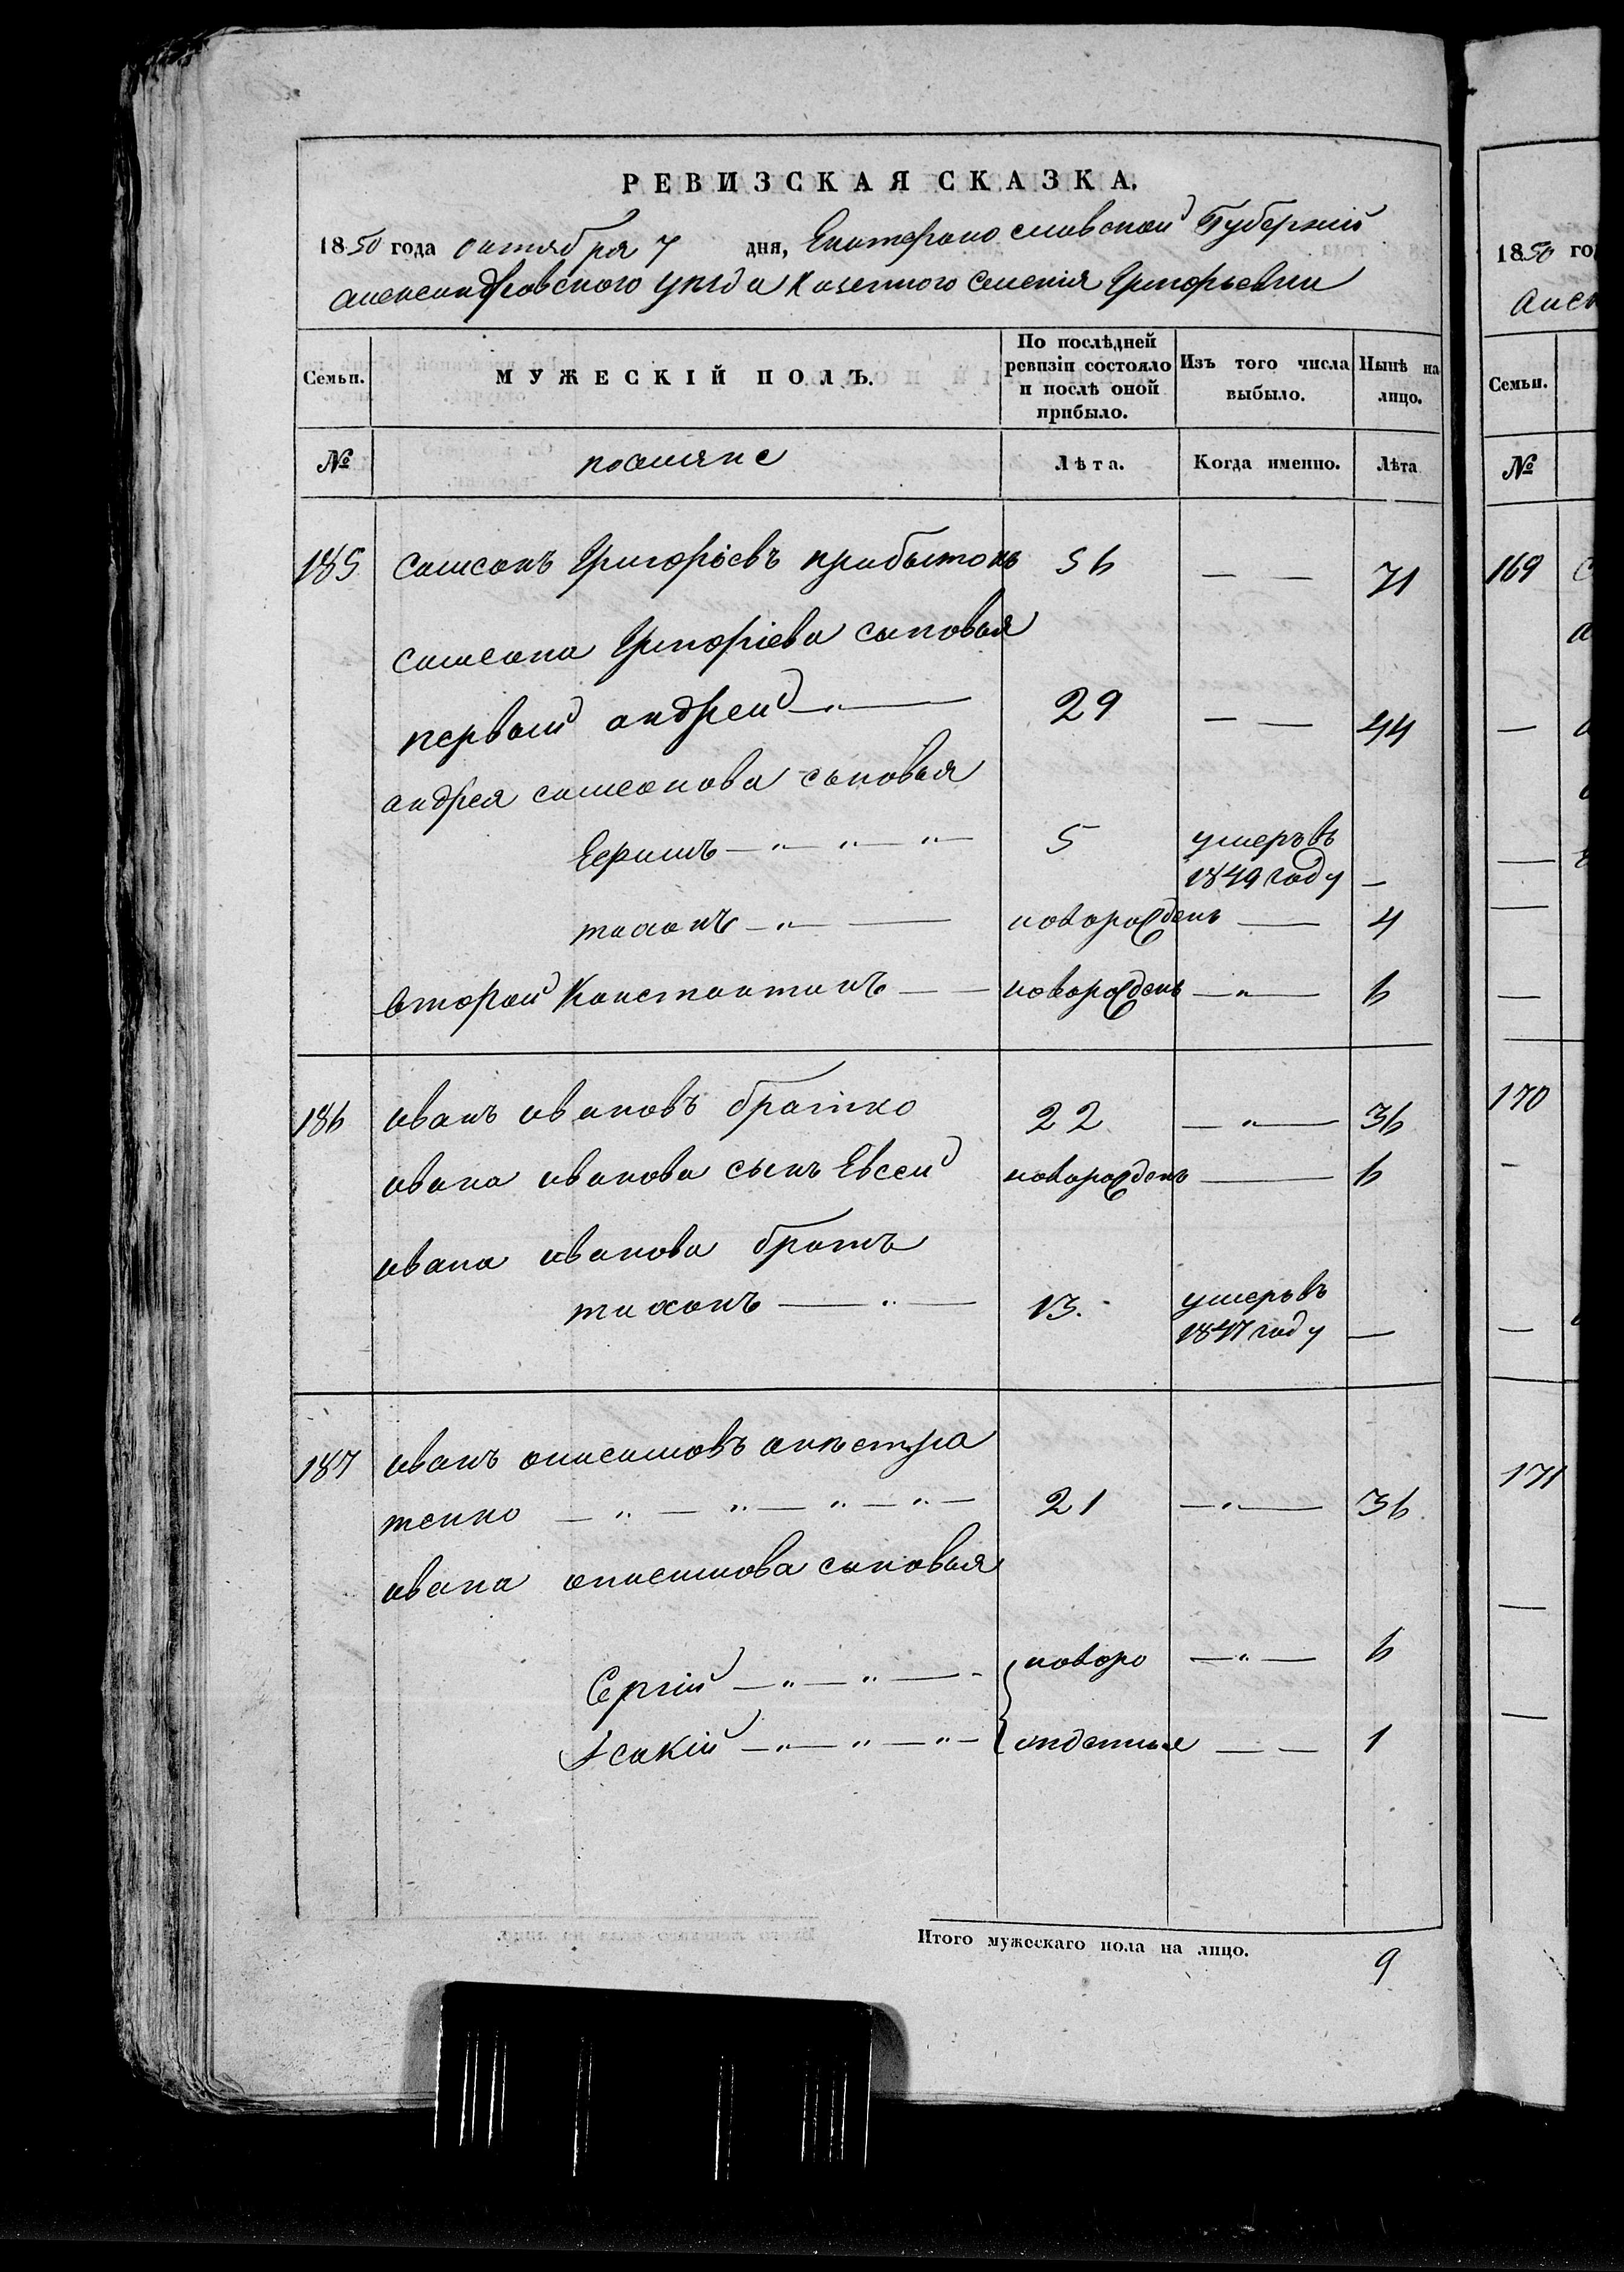 РЕВИЗСКАЯ СКАЗКА.
1850 года октября 7 дня, Екатеринославской Губерніи
Александровского уезда Казенного Селенія Григорьевки
Семьи. МУЖЕСКІЙ ПОЛЪ. По послѣдней ревизіи состояло и послѣ оной прибыло. Изъ того числа выбыло. Нынѣ на лицо.
№ поселяне Лѣта. Когда именно. Лѣта
185 Самсонъ Григоріевъ прибытокъ 56 — — 71
Самсона Григоріева сыновья
первый андрей —„— 29 — — 44
андрея самсонова сыновья
Ефимъ —„—„—„— 5 умеръ въ 1849 году —
тихонъ —„— — новорожденъ — 4
второй Константинъ — — новорожденъ —„— 6
186 иванъ ивановъ братко 22 —„— 36
ивана иванова сынъ Евсей новорожденъ — 6
ивана иванова братъ
тихонъ —„— 13. умеръ въ 1847 году —
187 иванъ онисимовъ
тенко —„—„—„—„— 21 —„— 36
ивана онисимова сыновья
Сергій —„—„— новоро —„— 6
Исакій —„—„—„— жденные — — 1
Итого мужескаго пола на лицо. 9
1850 го
Алек
Семьи.
№
169
170
171